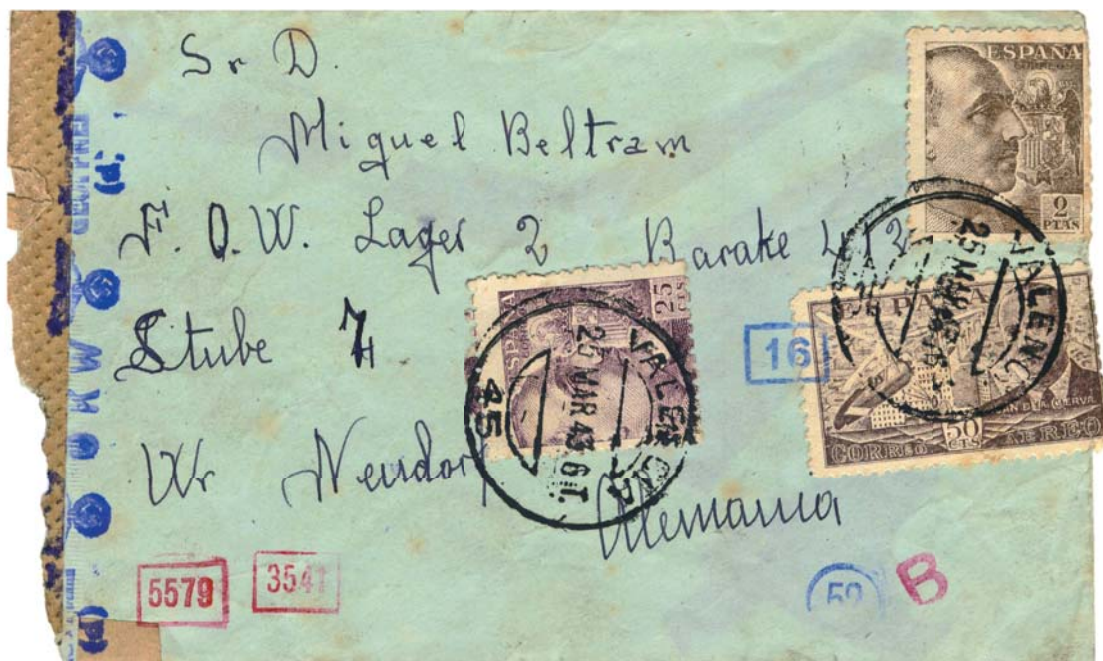 Sr D.
Miguel Beltram
F. O. W. Lager 2 Barake 412
Stube 4
Wr Neudorf
Alemania
ESPAÑA
CORREOS
2
PTAS
VALENCIA
25 MAR 43
ESPAÑA
JUAN DE LA CIERVA
50
CTS
CORREO AEREO
ESPAÑA
25
CTS
VALENCIA
25 MAR 43 6T.
45
16
5579
3541
59
B
Geöffnet
(d)
O K W
(d)